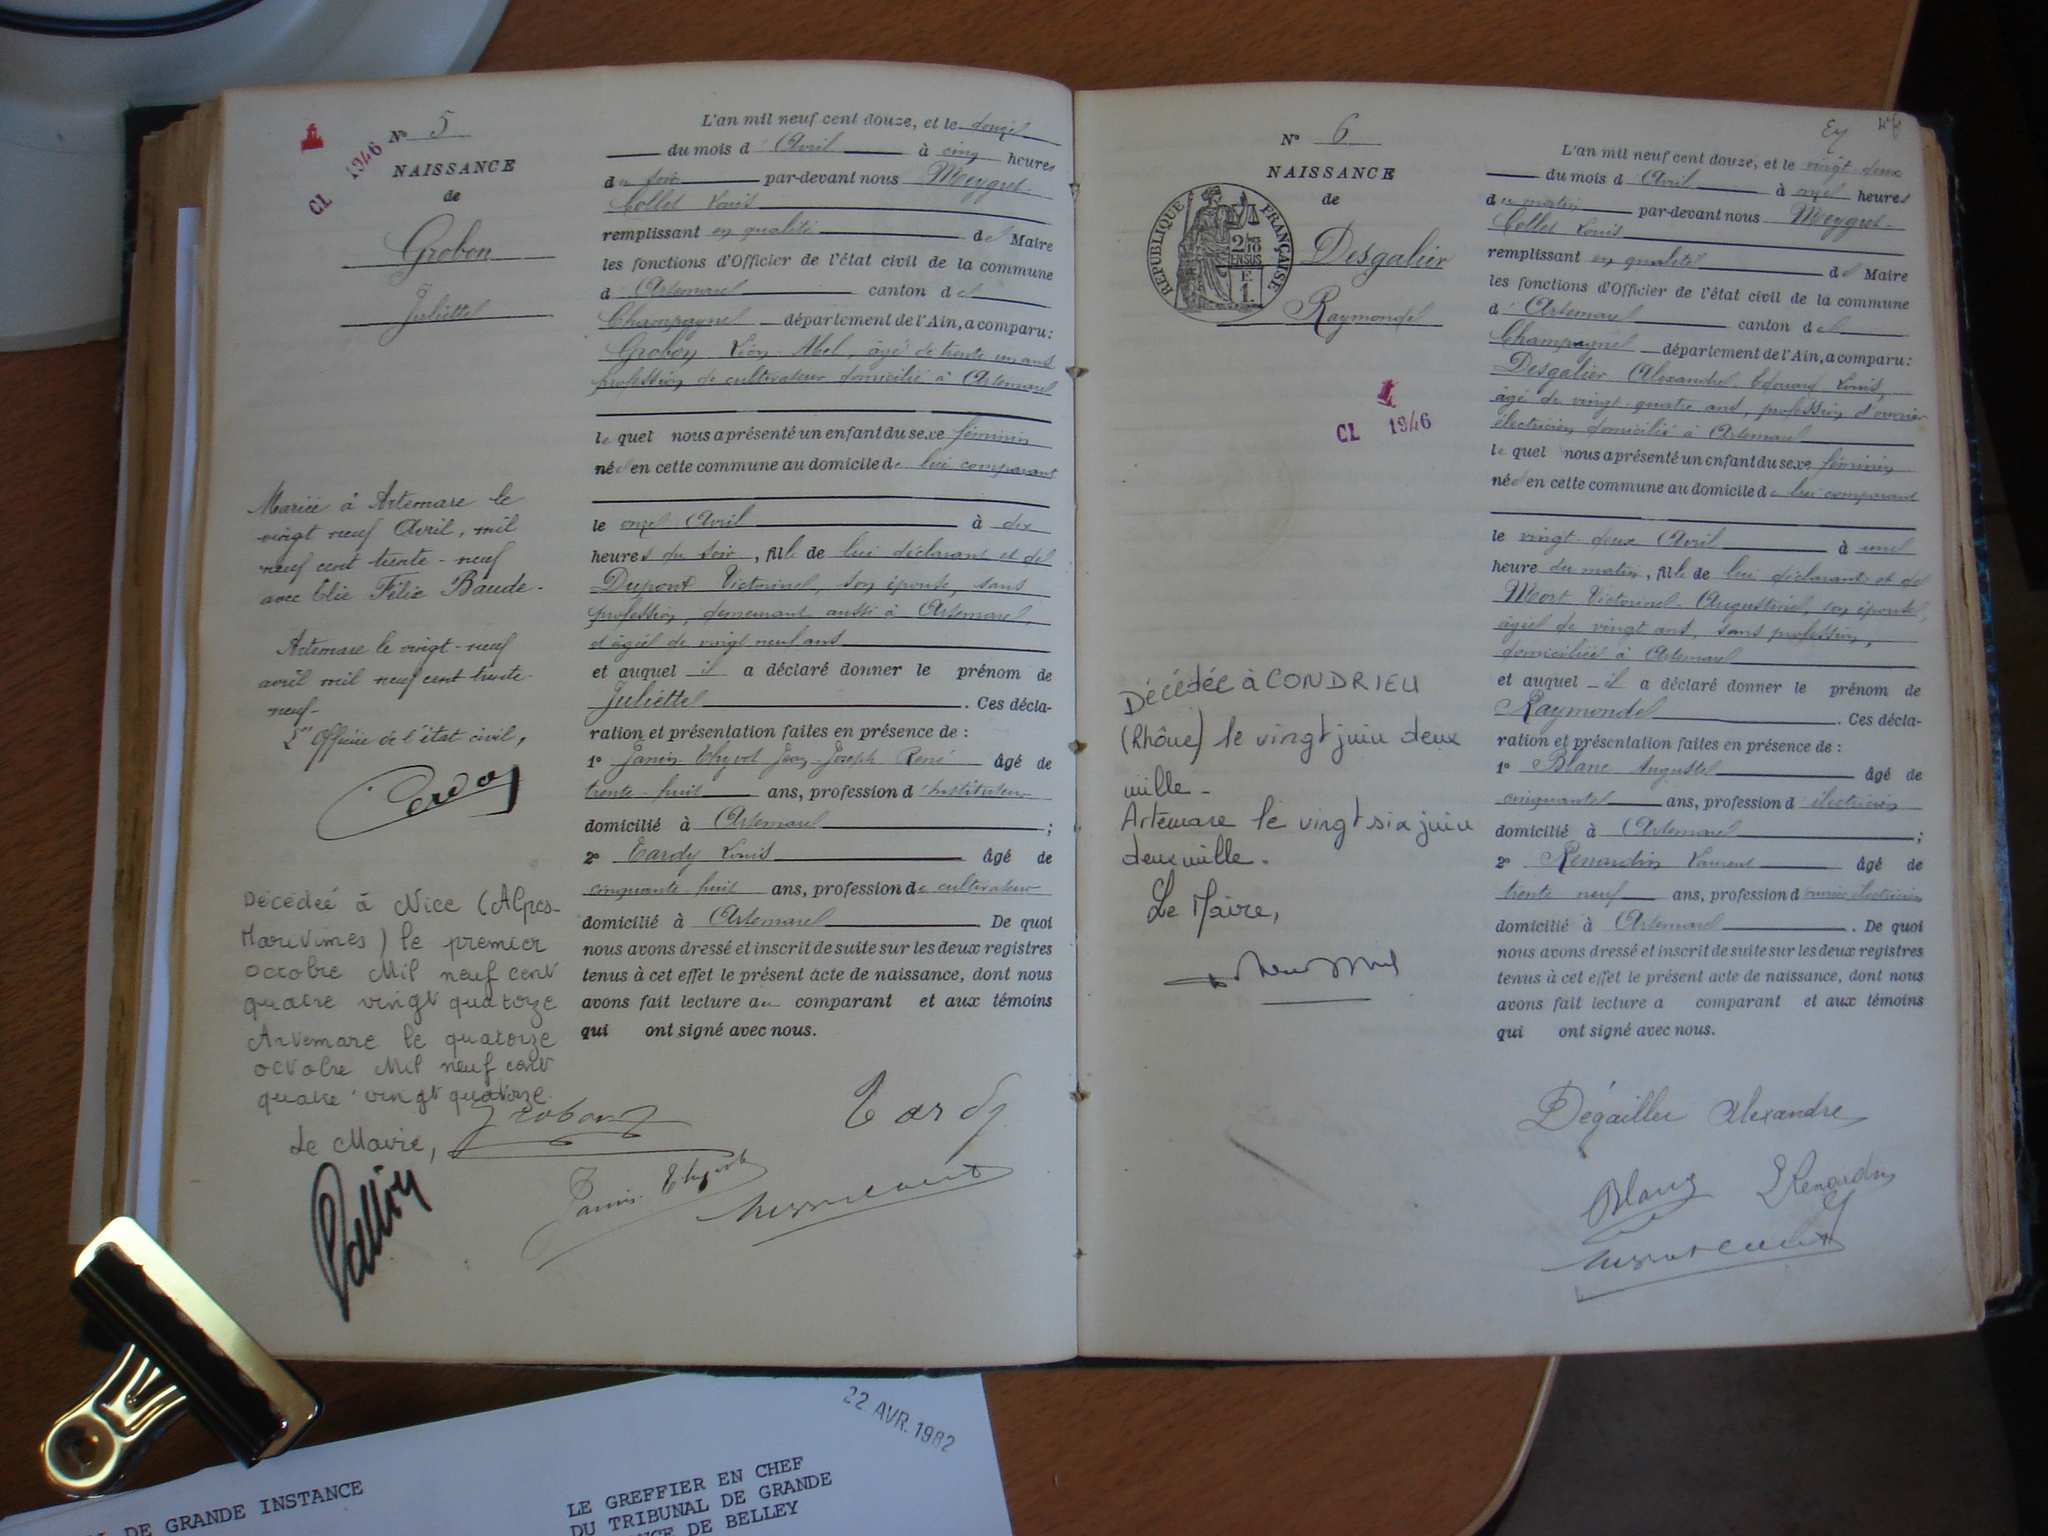 CL 1946
N° 5
NAISSANCE
de
Grobon
Juliette
Mariée à Artemare le
vingt neuf Avril, mil
neuf cent trente-neuf
avec Elie Félix Baude.
Artemare le vingt-neuf
avril mil neuf cent trente-
neuf-
L'Officier de l'état civil,
Décédée à Nice (Alpes-
Maritimes) le premier
octobre Mil neuf cent
quatre vingt quatorze
Artemare le quatorze
octobre Mil neuf cent
quatre vingt quatorze
Le Maire,
L'an mil neuf cent douze, et le douze
du mois d'Avril à cinq heures
du soir par-devant nous Meygret-
Collet Louis
remplissant en qualité de Maire
les fonctions d'Officier de l'état civil de la commune
d'Artemare canton de
Champagne département de l'Ain, a comparu:
Grobon Léon Abel, âgé de trente un ans
profession de cultivateur domicilié à Artemare
lequel nous a présenté un enfant du sexe féminin
née en cette commune au domicile de lui comparant
le onze Avril à dix
heures du soir, fille de lui déclarant et de
Dupont Victorine, son épouse, sans
profession, demeurant aussi à Artemare,
et âgée de vingt neuf ans
et auquel il a déclaré donner le prénom de
Juliette. Ces décla-
ration et présentation faites en présence de :
1° Janin Thyvot Jean Joseph René âgé de
trente-huit ans, profession d'instituteur
domicilié à Artemare ;
2° Tardy Louis âgé de
cinquante huit ans, profession de cultivateur
domicilié à Artemare. De quoi
nous avons dressé et inscrit de suite sur les deux registres
tenus à cet effet le présent acte de naissance, dont nous
avons fait lecture au comparant et aux témoins
qui ont signé avec nous.
Grobon Tardy
Janin-Thyvot
N° 6
NAISSANCE
de
RÉPUBLIQUE FRANÇAISE
Desgalier
Raymonde
CL 1946
Décédée à CONDRIEU
(Rhône) le vingt juin deux
mille -
Artemare le vingt six juin
deux mille.
Le Maire,
L'an mil neuf cent douze, et le vingt-deux
du mois d'Avril à onze heures
du matin par-devant nous Meygret-
Collet Louis
remplissant en qualité de Maire
les fonctions d'Officier de l'état civil de la commune
d'Artemare canton de
Champagne département de l'Ain, a comparu:
Desgalier Alexandre Edouard Louis,
âgé de vingt-quatre ans, profession d'ouvrier
électricien domicilié à Artemare
lequel nous a présenté un enfant du sexe féminin
née en cette commune au domicile de lui comparant
le vingt deux Avril à une
heure du matin, fille de lui déclarant et de
Mort Victorine Augustine, son épouse,
âgée de vingt ans, sans profession,
domiciliée à Artemare
et auquel il a déclaré donner le prénom de
Raymonde. Ces décla-
ration et présentation faites en présence de :
1° Blanc Auguste âgé de
cinquante ans, profession d'électricien
domicilié à Artemare ;
2° Renardin Laurent âgé de
trente neuf ans, profession d'ouvrier électricien
domicilié à Artemare. De quoi
nous avons dressé et inscrit de suite sur les deux registres
tenus à cet effet le présent acte de naissance, dont nous
avons fait lecture a comparant et aux témoins
qui ont signé avec nous.
Dégailler Alexandre
Blanc L Renardin
22 AVR. 1982
DE GRANDE INSTANCE
LE GREFFIER EN CHEF
DU TRIBUNAL DE GRANDE
DE BELLEY